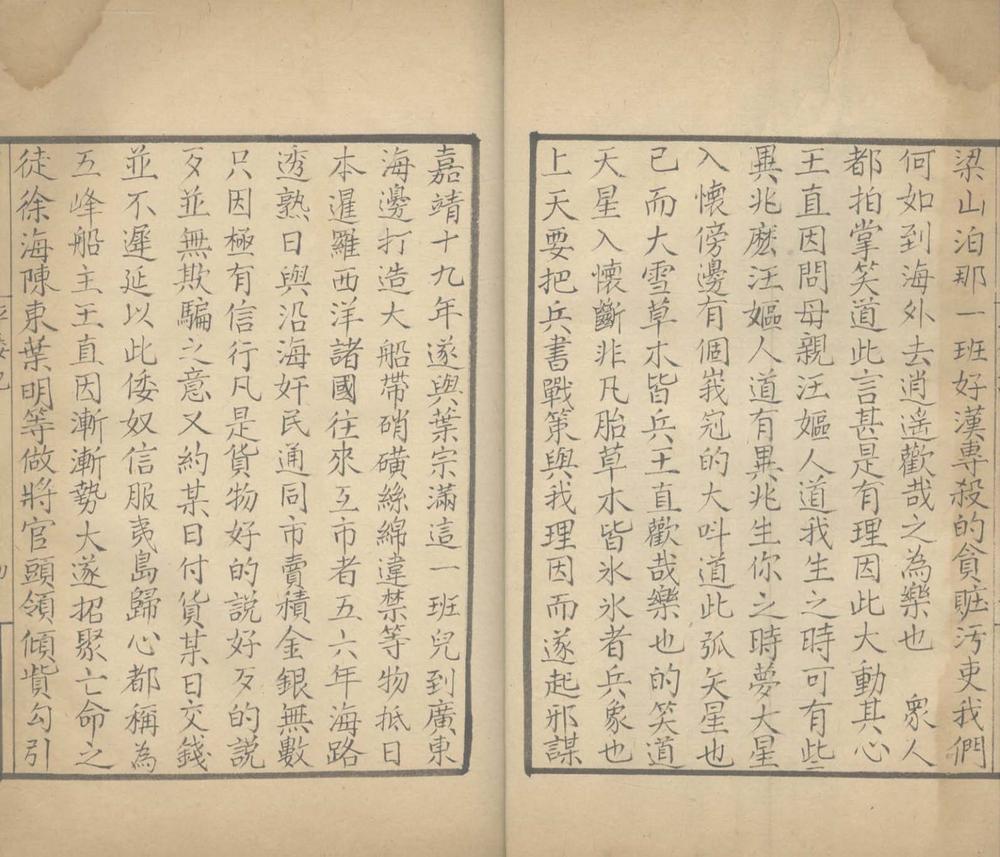 梁山泊那一班好漢專殺的貪賍污吏我們
何如到海外去逍遥歡哉之為樂也　衆人
都拍掌笑道此言甚是有理因此大動其心
王直因問母親汪嫗人道我生之時可有些
異兆麽汪嫗人道有異兆生你之時夢大星
入懷傍邊有個峩冠的大呌道此弧矢星也
已而大雪草木皆兵王直歡哉樂也的笑道
天星入懷斷非凡胎草木皆氷氷者兵象也
上天要把兵書戰策與我理因而遂起邪謀
嘉靖十九年遂與葉宗滿這一班兒到廣東
海邊打造大船帶硝磺絲綿違禁等物抵日
本暹羅西洋諸國往來互市者五六年海路
透熟日與沿海奸民通同市賣積金銀無數
只因極有信行凡是貨物好的說好歹的說
歹並無欺騙之意又約某日付貨某日交錢
並不遲延以此倭奴信服夷島歸心都稱為
五峰船主王直因漸漸勢大遂招聚亡命之
徒徐海陳東葉明等做將官頭領傾貲勾引